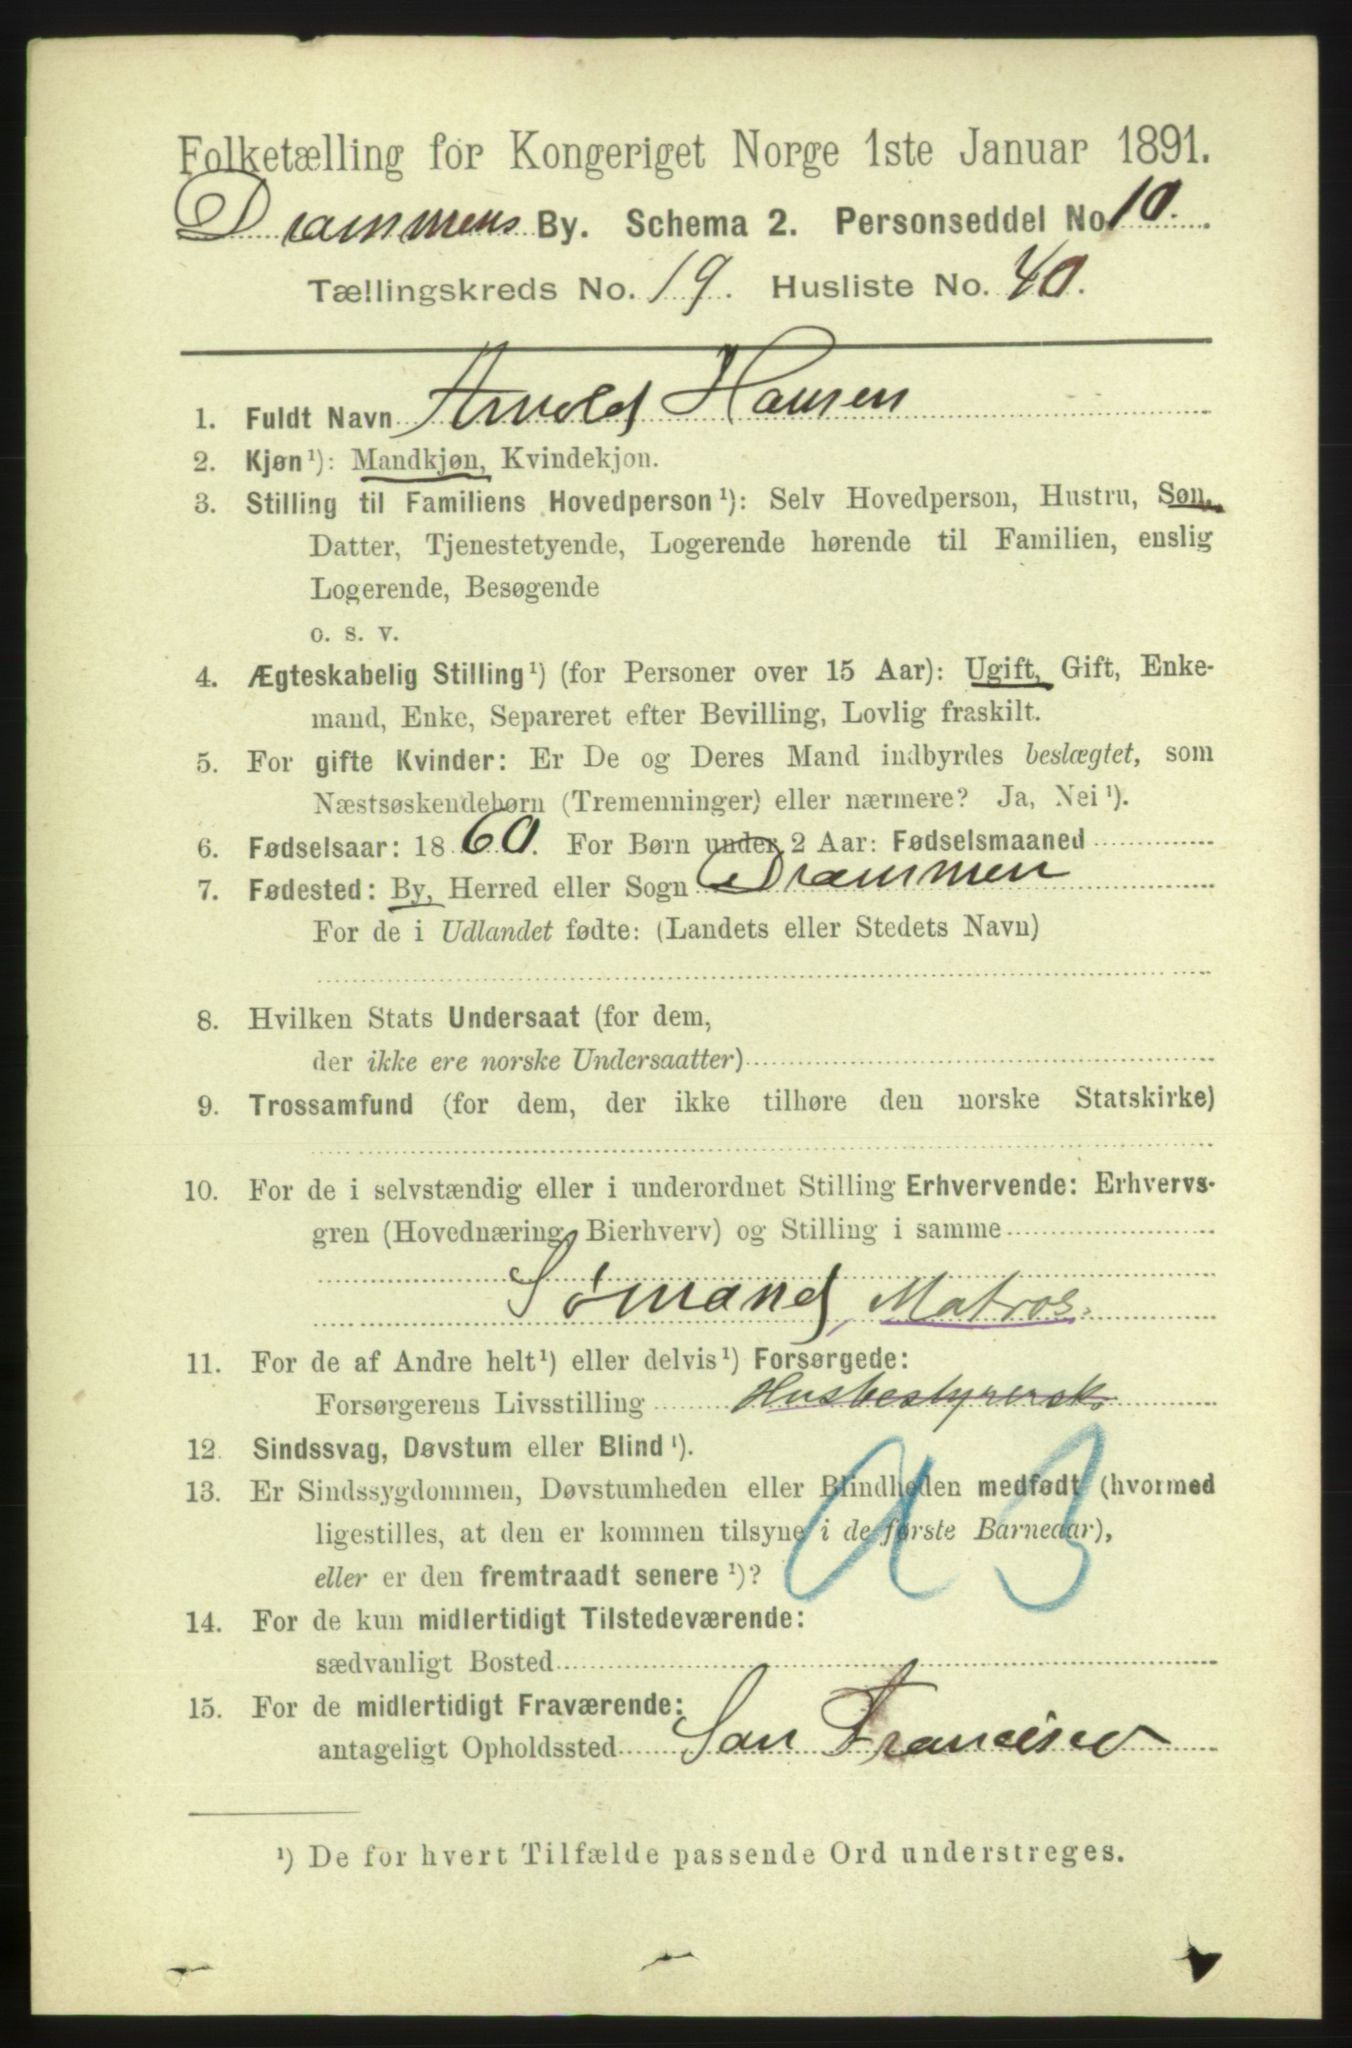 Folketælling for Kongeriget Norge 1ste Januar 1891.
Drammens By. Schema 2. Personseddel No 10.
Tællingskreds No. 19. Husliste No. 40.
1. Fuldt Navn Arnold Hansen
2. Kjøn ¹): Mandkjøn, Kvindekjøn.
3. Stilling til Familiens Hovedperson ¹): Selv Hovedperson, Hustru, Søn,
Datter, Tjenestetyende, Logerende hørende til Familien, enslig
Logerende, Besøgende
o. s. v.
4. Ægteskabelig Stilling ¹) (for Personer over 15 Aar): Ugift, Gift, Enke-
mand, Enke, Separeret efter Bevilling, Lovlig fraskilt.
5. For gifte Kvinder: Er De og Deres Mand indbyrdes beslægtet, som
Næstsøskendebørn (Tremenninger) eller nærmere? Ja, Nei ¹).
6. Fødselsaar: 1860. For Børn under 2 Aar: Fødselsmaaned
7. Fødested: By, Herred eller Sogn Drammen
For de i Udlandet fødte: (Landets eller Stedets Navn)
8. Hvilken Stats Undersaat (for dem,
der ikke ere norske Undersaatter)
9. Trossamfund (for dem, der ikke tilhøre den norske Statskirke)
10. For de i selvstændig eller i underordnet Stilling Erhvervende: Erhvervs-
gren (Hovednæring, Bierhverv) og Stilling i samme
Sømand, Matros.
11. For de af Andre helt ¹) eller delvis ¹) Forsørgede:
Forsørgerens Livsstilling Husbestyrersk.
12. Sindssvag, Døvstum eller Blind ¹).
13. Er Sindssygdommen, Døvstumheden eller Blindheden medfødt (hvormed
ligestilles, at den er kommen tilsyne i de første Barneaar),
eller er den fremtraadt senere ¹)?
14. For de kun midlertidigt Tilstedeværende:
sædvanligt Bosted
15. For de midlertidigt Fraværende:
antageligt Opholdssted San Francisco
¹) De for hvert Tilfælde passende Ord understreges.